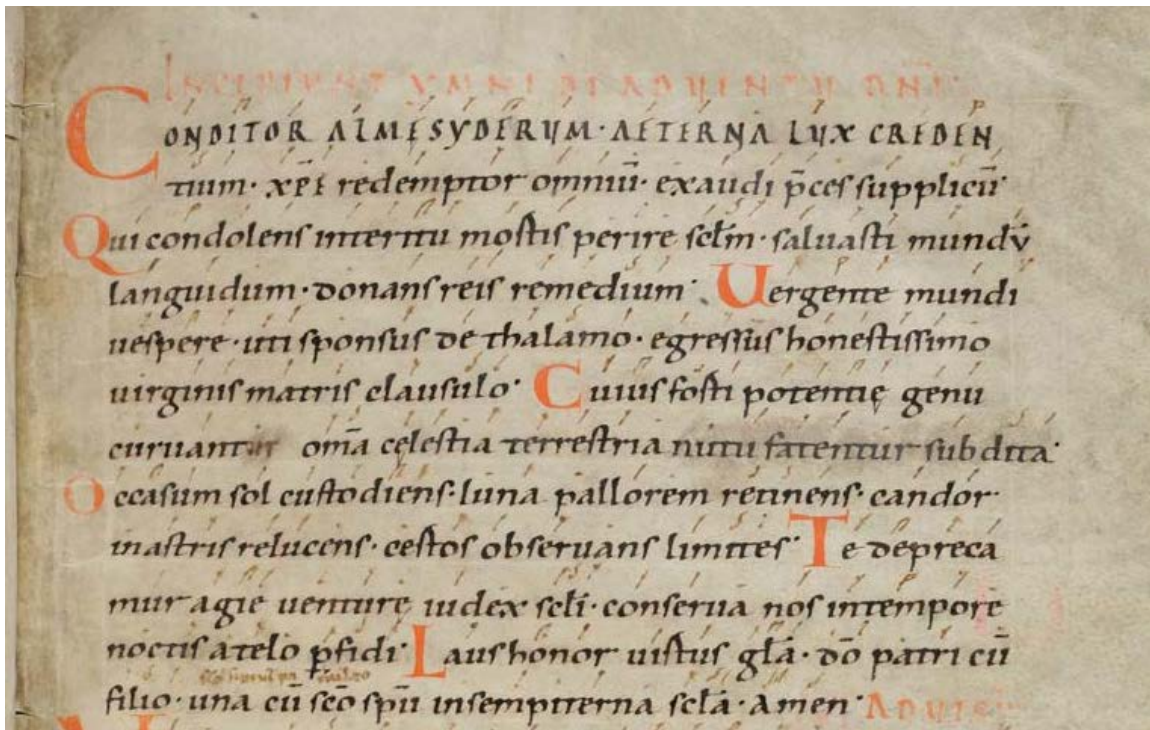 INCIPIUNT YMNI DE ADUENTU DNI
CONDITOR ALME SYDERUM · AETERNA LUX CREDEN
tium · xp̄e redemptor omniū · exaudi p̄ces supplicū·
Qui condolens interitu mostis perire sclīm · saluasti mundū
languidum · donans reis remedium· Uergente mundi
uespere · uti sponsus de thalamo · egressus honestissimo
uirginis matris clausulo· Cuius fosti potentię genu
curuantur om̄a cęlestia terrestria nutu fatentur subdita·
Occasum sol custodiens · luna pallorem retinens · candor
in astris relucens · cestos obseruans limites· Te depreca
mur agie uenture iudex sclī · conserua nos in tempore
noctis a telo p̄fidi· Laus honor uistus glā · dō patri cū
filio · una cū scō spū in sempiterna sclā · amen·